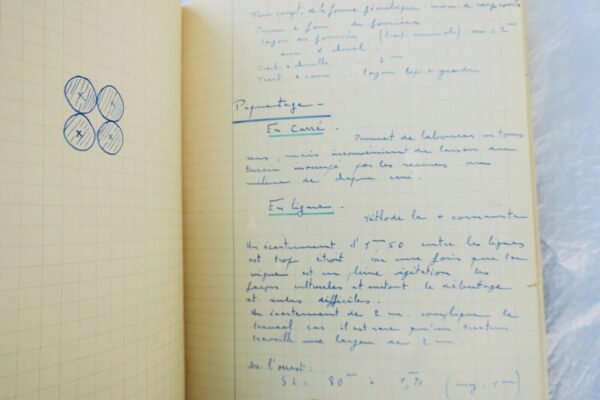 Tenir compte de la forme géométrique, moins de
Penser à faire des fourrières.
largeur des fourrières (tract. animale) : min = 2 m
avec 1 cheval
Tract. à chenille : 3 m
Tract. à roues : largeur bcp + grande
Piquetage -
En Carré. Permet de labourer en tous
sens, mais inconvénient de laisser du
terrain par les racines au
milieu de chaque carré.
En ligne.
Méthode la + courante
Un écartement d'1m50 entre les lignes
est trop étroit, une fois que la
vigne est en pleine végétation les
façons culturales et surtout le débuttage
st rendus difficiles.
Un écartement de 2 m. complique le
travail car il est rare qu'un tracteur
travaille une largeur de 2 m.
ds. l'ouest :
S.L : 80 cm à 1,m90 (moy. 1 m)